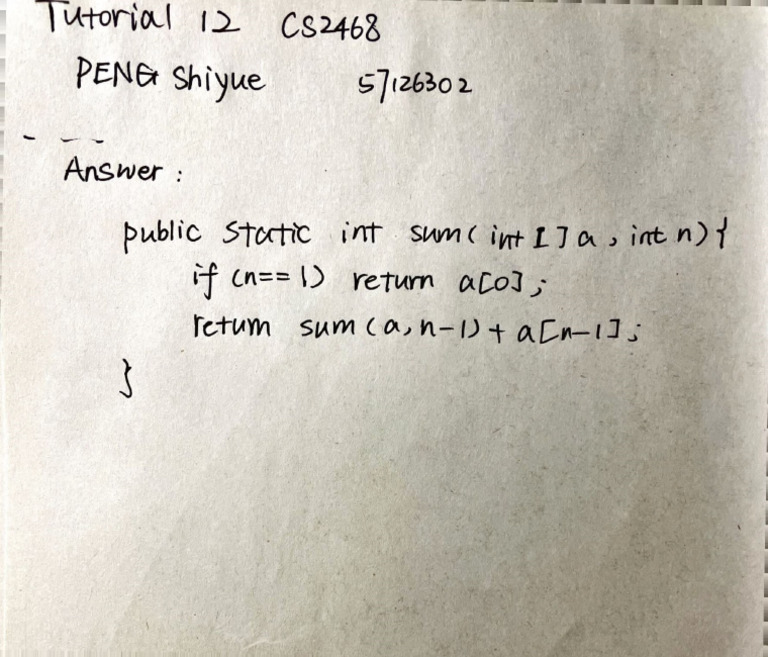 Tutorial 12 CS2468
PENG Shiyue 57126302
Answer :
public static int sum( int []a , int n){
if (n==1) return a[0];
return sum (a, n-1) + a[n-1];
}